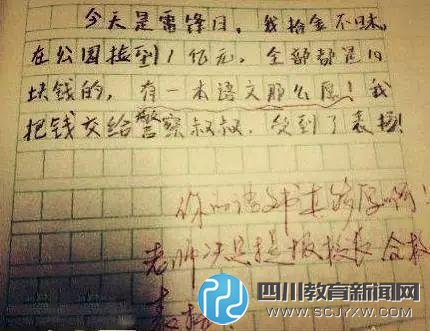 今天是雷锋日，我拾金不昧，
在公园捡到1亿元，全部都是10
块钱的，有一本语文那么厚！我
把钱交给警察叔叔，受到了表扬！
你的语文书真够厚啊！
老师决定提报校长 全校
表扬！
四川教育新闻网
WWW.SCJYXW.COM